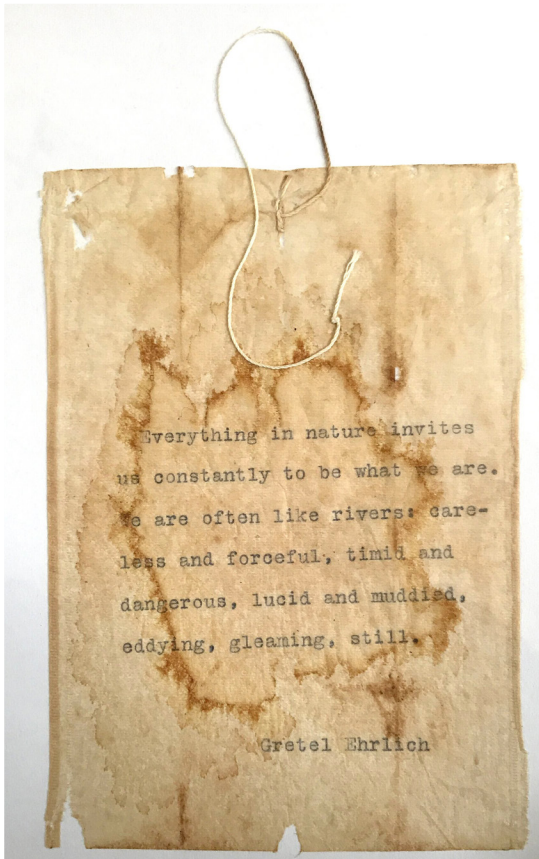 Everything in nature invites
us constantly to be what we are.
We are often like rivers: care-
less and forceful, timid and
dangerous, lucid and muddied,
eddying, gleaming, still.
Gretel Ehrlich